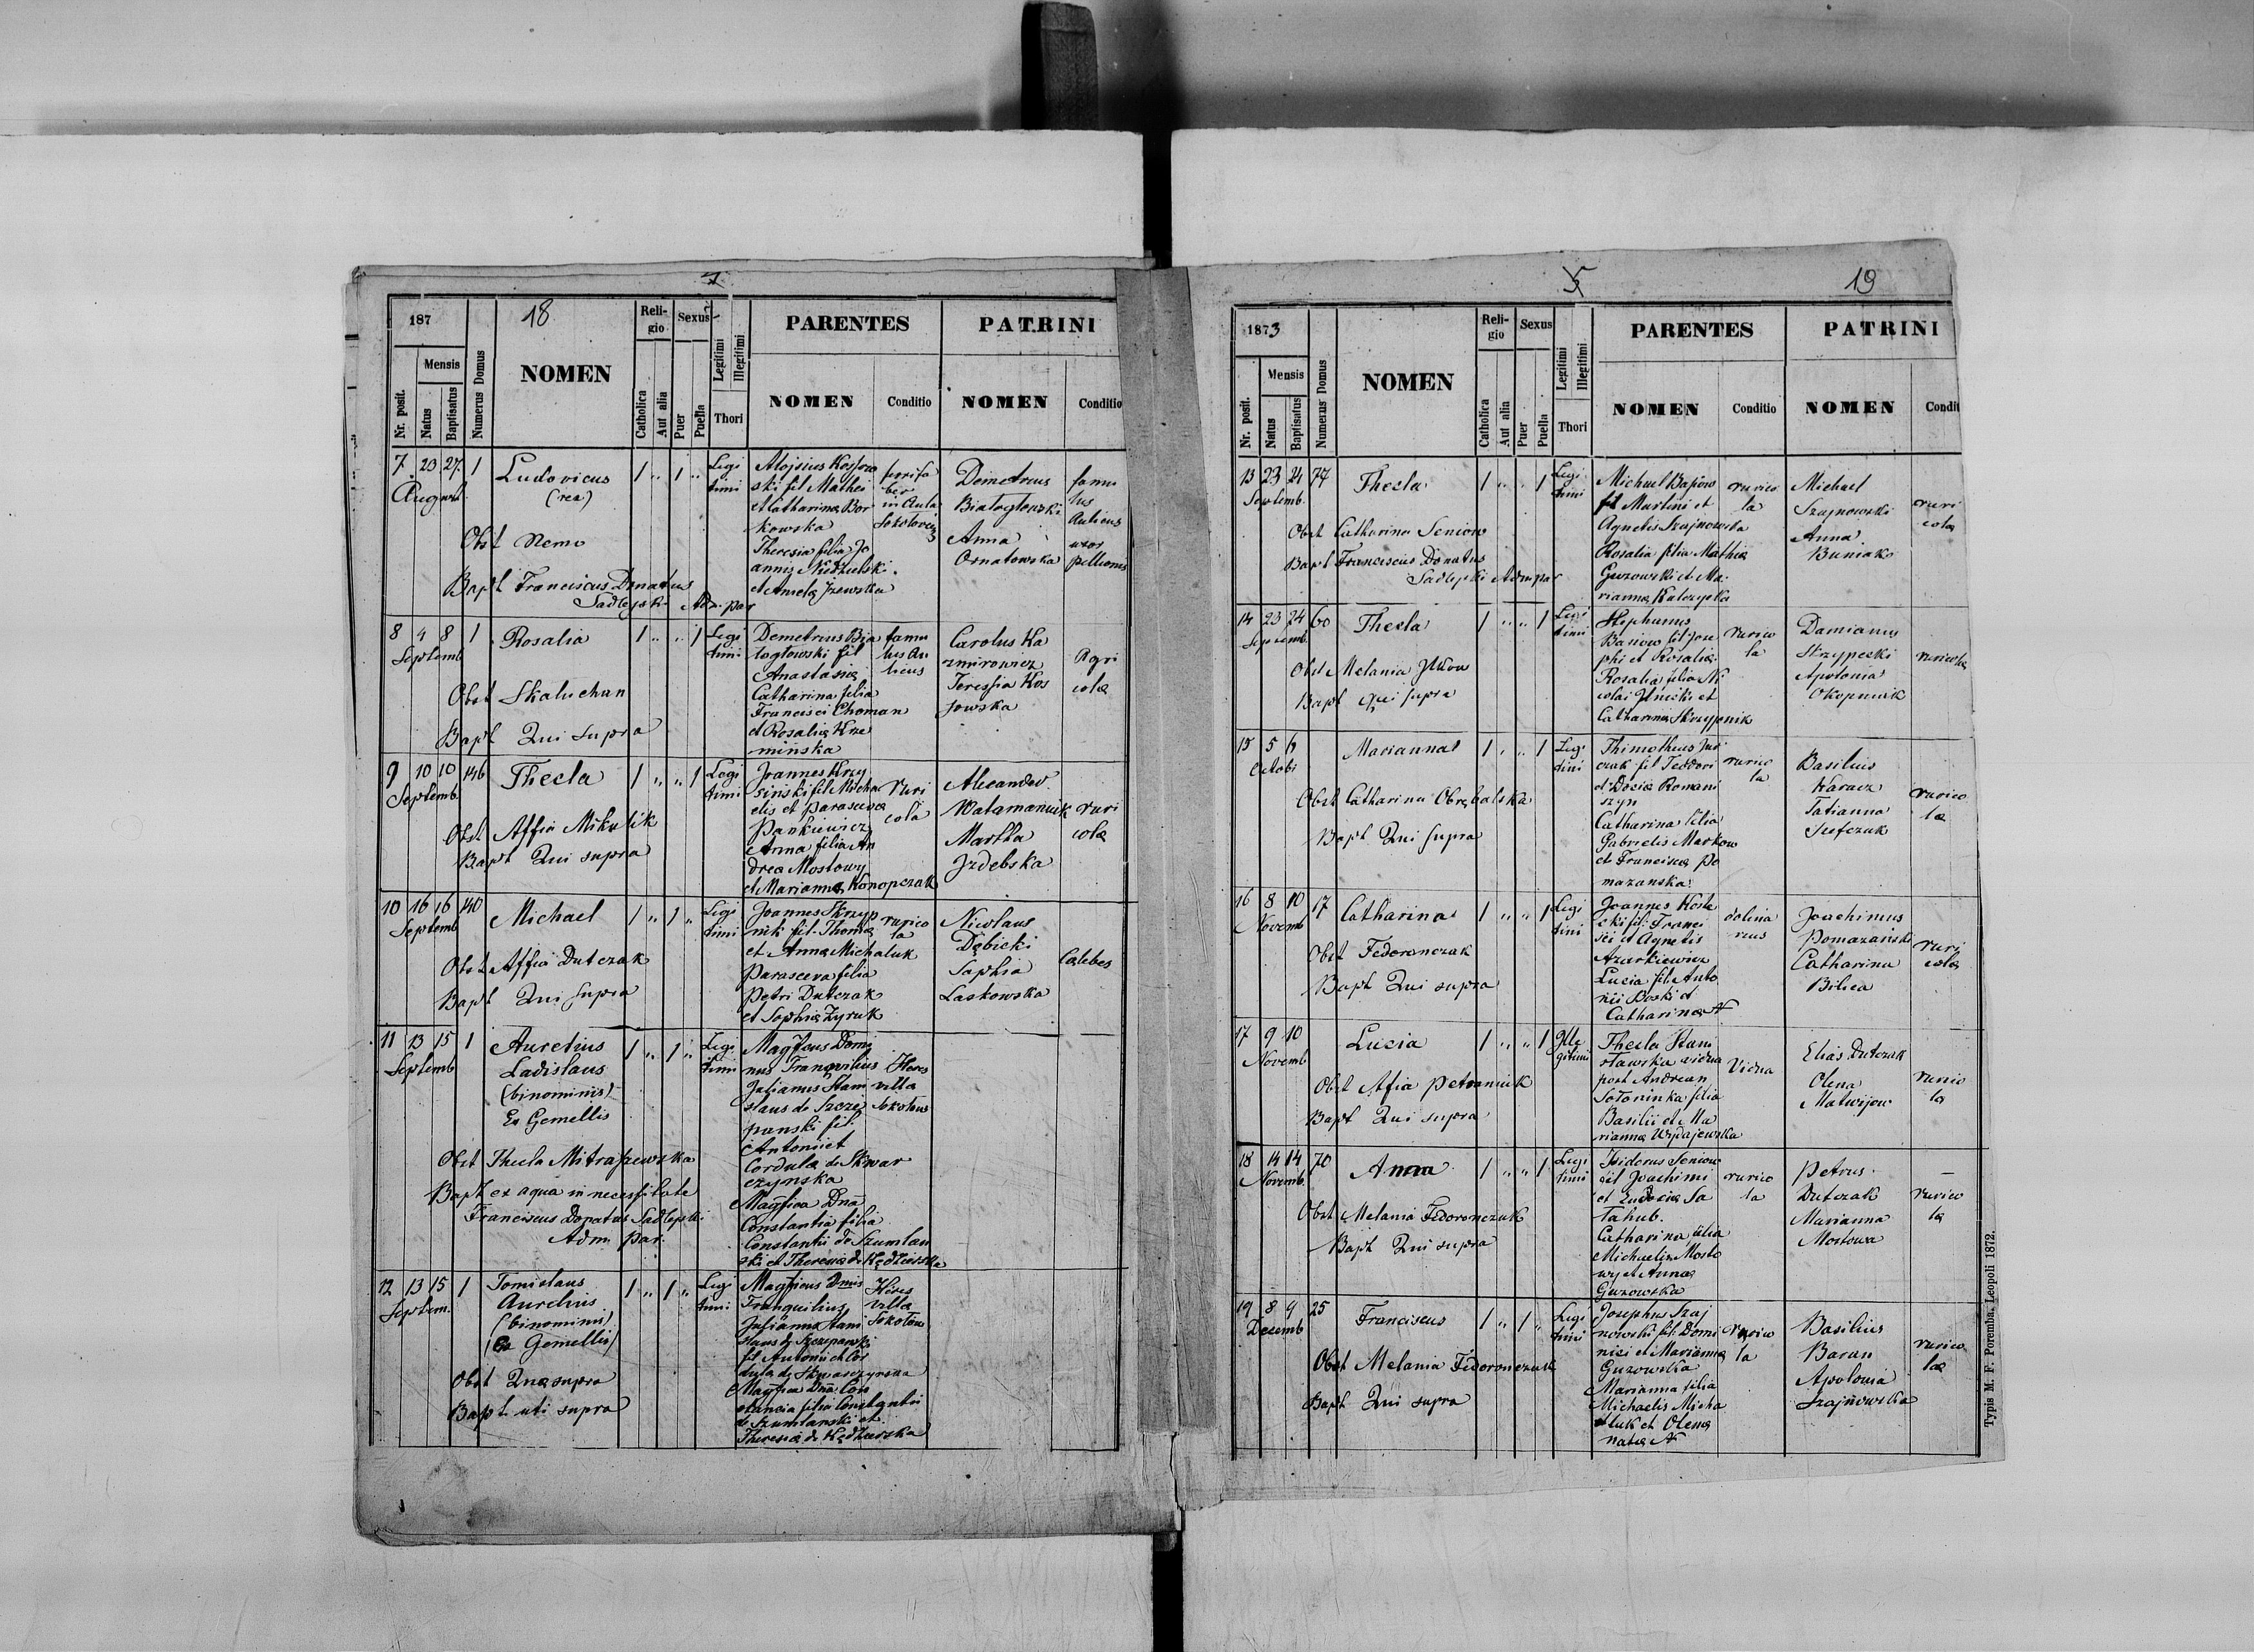 18
187
Mensis
Nr. posit.
Natus
Baptisatus
Numerus Domus
NOMEN
Reli-
gio
Catholica
Aut alia
Sexus
Puer
Puella
Legitimi
Illegitimi
Thori
PARENTES
NOMEN
Conditio
PATRINI
NOMEN
Conditio
7 20 27 1
August
Ludovicus
Obst Nemo
Bapt Franciscus Donatus
Sadlejski Adm. par
1 " 1 "
Legi
timi
Aloisius Kossow
ski fil Mathei
et Catharina Bor
kowska
Theresia filia Jo
annis Niedzielski
et Aniela
in Aula
Demetrius
Białogłowski
Anna
Ornatowska
famu
lus
Aulicus
uxor
pellionis
8 4 8 1
Septemb
Rosalia
Obst Skaluchan
Bapt Qui supra
1 " " 1
Legi
timi
Demetrius Bia
łogłowski fil
Anastasia
Catharina filia
Francisci Choman
et Rosalia Krze
mińska
famu
lus Au
licus
Carolus Ka
zmirowicz
Teressia Kos
sowska
Agri
cola
9 10 10 146
Septemb
Thecla
Obst Affia Mikulik
Bapt Qui supra
1 " " 1
Legi
timi
Joannes Krzy
siński fil Micha
elis et Parasceva
Pankiewicz
Anna filia An
drea Mostowy
et Marianna Konopczak
Ruri
cola
Alexander
Watamaniuk
Martha
Jzdebska
ruri
cola
10 16 16 140
Septemb
Michael
Obst Affia Dutczak
Bapt Qui supra
1 " 1 "
Legi
timi
Joannes Skrzyp
nik fil. Thoma
et Anna Michaluk
Parasceva filia
Petri Dutczak
et Sophia Zyruk
rurico
la
Nicolaus
Dębicki
Sophia
Laskowska
Calebes
11 13 15 1
Septemb
Aurelius
Ladislaus
(binominis)
Ex Gemellis
Obst Thecla Mitraszewska
Bapt ex aqua in necessitate
Franciscus Donatus Sadlejski
Adm par.
1 " 1 "
Legi
timi
Magficus Domi
nus Tranquilius
Julianus Stani
slaus de Szcze
panski fil.
Antonii et
Cordula de Skwar
czynska
Magfica Dna
Constantia filia
Constantii de Szumlan
ski et Theresia de
Heres
villa
12 13 15 1
Septem.
Tomislaus
Aurelius
(binominis)
(Ex Gemellis)
Obst Qua supra
Bapt. uti supra
1 " 1 "
Legi
timi
Magficus Dnus
Tranquilius
Julianus Stani
slaus de Szczepanski
fil Antonii et Cor
dula de Skwarczynska
Magfica Dna Con
stancia filia Constantii
de Szumlanski et
Theresia de
Heres
villa
5 19
1873
Mensis
Nr. posit.
Natus
Baptisatus
Numerus Domus
NOMEN
Reli-
gio
Catholica
Aut alia
Sexus
Puer
Puella
Legitimi
Illegitimi
Thori
PARENTES
NOMEN
Conditio
PATRINI
NOMEN
Condit
13 23 24 77
Septemb.
Thecla
Obst Catharina Seniow
Bapt Franciscus Donatus
Sadlejski Adm par
1 " " 1
Legi
timi
Michael Basiow
fil Martini et
Agnetis Szajnowska
Rosalia filia Mathia
Guzowski et Ma
rianna
rurico
la
Michael
Szajnowski
Anna
Buniak
ruri
cola
14 23 24 60
Septemb.
Thecla
Obst Melania
Bapt qui supra
1 " " 1
Legi
timi
Stephanus
Basiow fil Jose
phi et Rosalia
Rosalia filia Ni
colai et
Catharina Skrzypnik
rurico
la
Damianus
Skrzypecki
Apolonia
Okopniuk
ruricola
15 5 6
Octobr
Marianna
Obst Catharina Obrębalska
Bapt Qui supra
1 " " 1
Legi
timi
Thimotheus Jur
czak fil Teodori
et Docia Romani
szyn
Catharina filia
Gabrielis Markow
et Francisca Po
mazanska
rurico
la
Basilius
Karacz
Tatianna
Szefczuk
rurico
la
16 8 10 17
Novemb
Catharina
Obst Fedoronczak
Bapt Qui supra
1 " " 1
Legi
timi
Joannes Koste
cki fil. Franci
sci et Agnetis
Azarkiewicz
Lucia fil Anto
nii Boski et
Catharina N
dolia
rius
Joachimus
Pomazański
Catharina
Bilica
ruri
cola
17 9 10
Novemb
Lucia
Obst Afia Petraniuk
Bapt Qui supra
1 " " 1
Ille
gitimi
Thecla Stani
sławska vidua
post Andream
Sołoninka filia
Basilii et Ma
rianna
Vidua
Elias Dutczak
Olena
Matwijow
rurico
la
18 14 14 70
Novemb.
Anna
Obst Melania Fedoronczuk
Bapt Qui supra
1 " " 1
Legi
timi
Isidorus Seniow
fil Joachimi
et Eudocia Sa
łahub.
Catharina filia
Michaelis Mosto
wy et Anna
Guzowska
rurico
la
Petrus
Dutczak
Marianna
Mostowa
rurico
la
19 8 9 25
Decemb
Franciscus
Obst Melania Fedoronczuk
Bapt Qui supra
1 " 1 "
Legi
timi
Josephus Szaj
nowski fil. Domi
nici et Marianna
Guzowska
Marianna filia
Michaelis Micha
luk et Olena
nata N
rurico
la
Basilius
Baran
Apolonia
Szajnowska
rurico
la
Typis M. F. Poremba. Leopoli 1872.